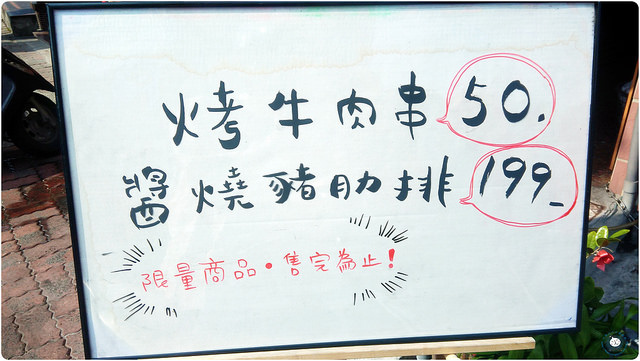 烤牛肉串 50.
醬燒豬肋排 199_
限量商品·售完為止!